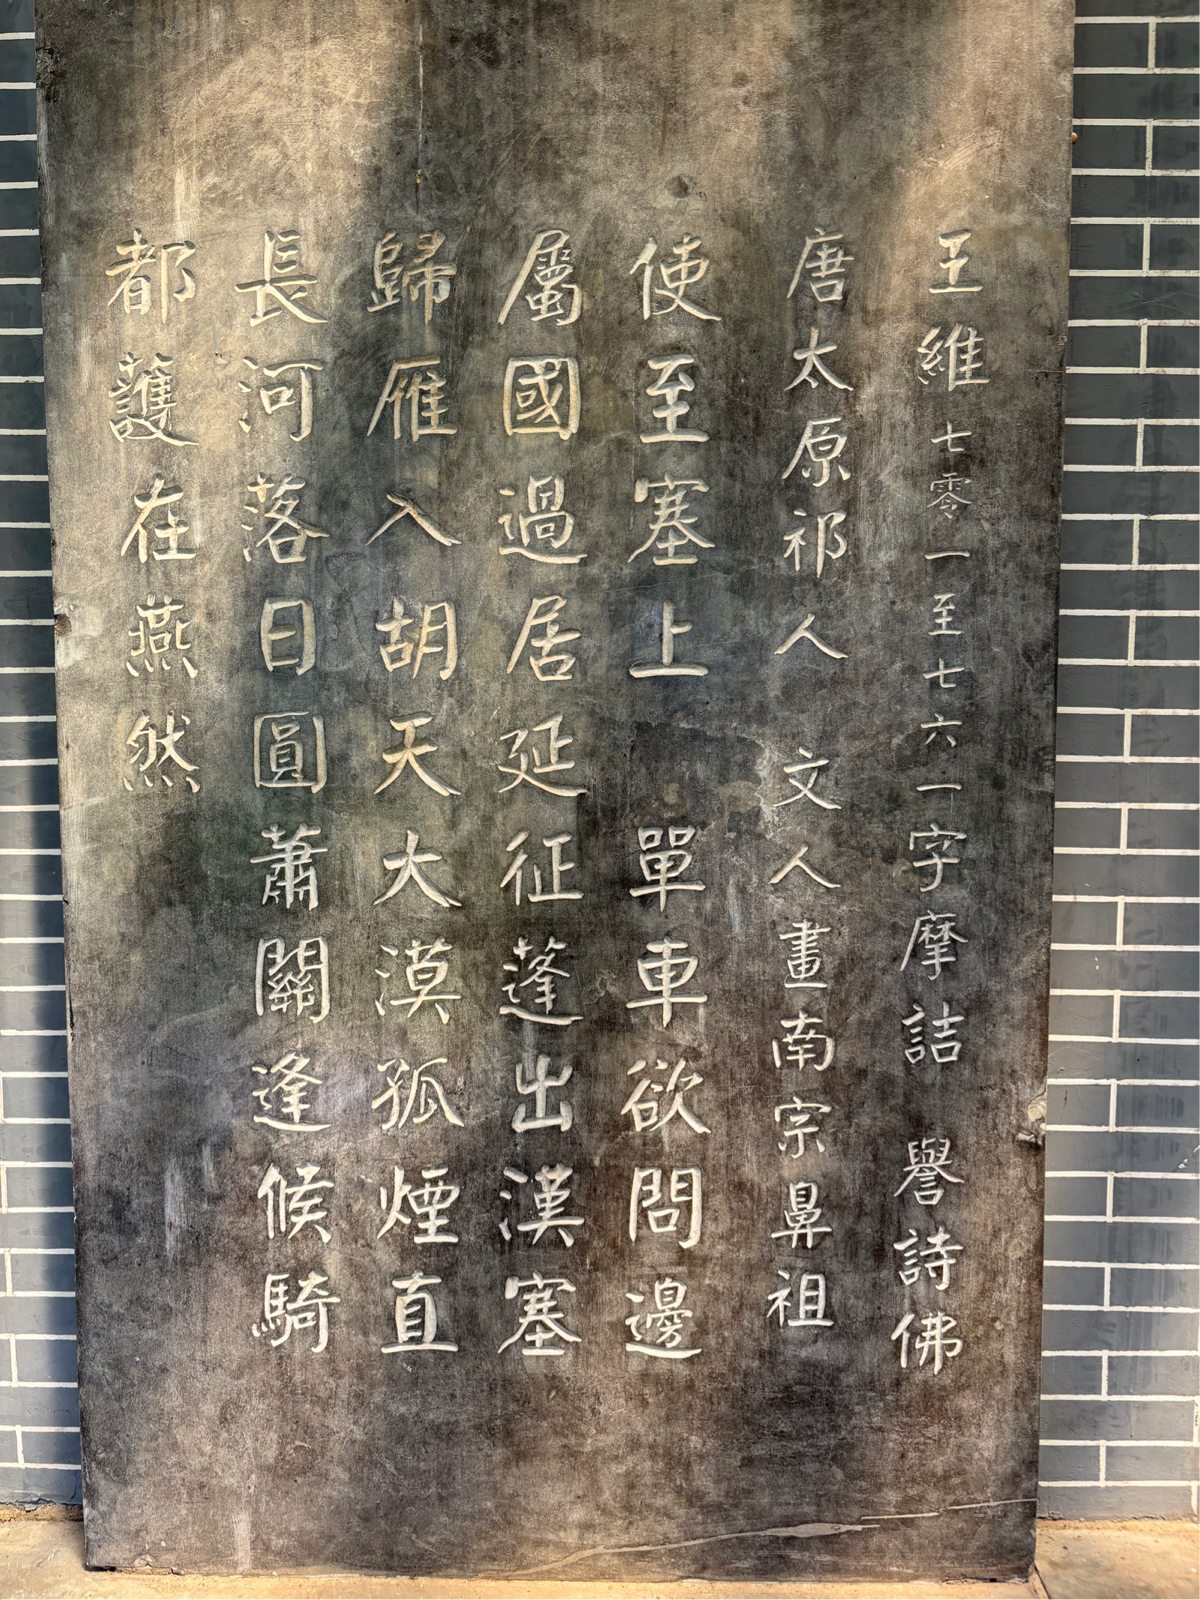 王維七零一至七六一字摩詰 譽詩佛
唐太原祁人 文人畫南宗鼻祖
使至塞上 單車欲問邊
屬國過居延征蓬出漢塞
歸雁入胡天大漠孤煙直
長河落日圓蕭關逢候騎
都護在燕然